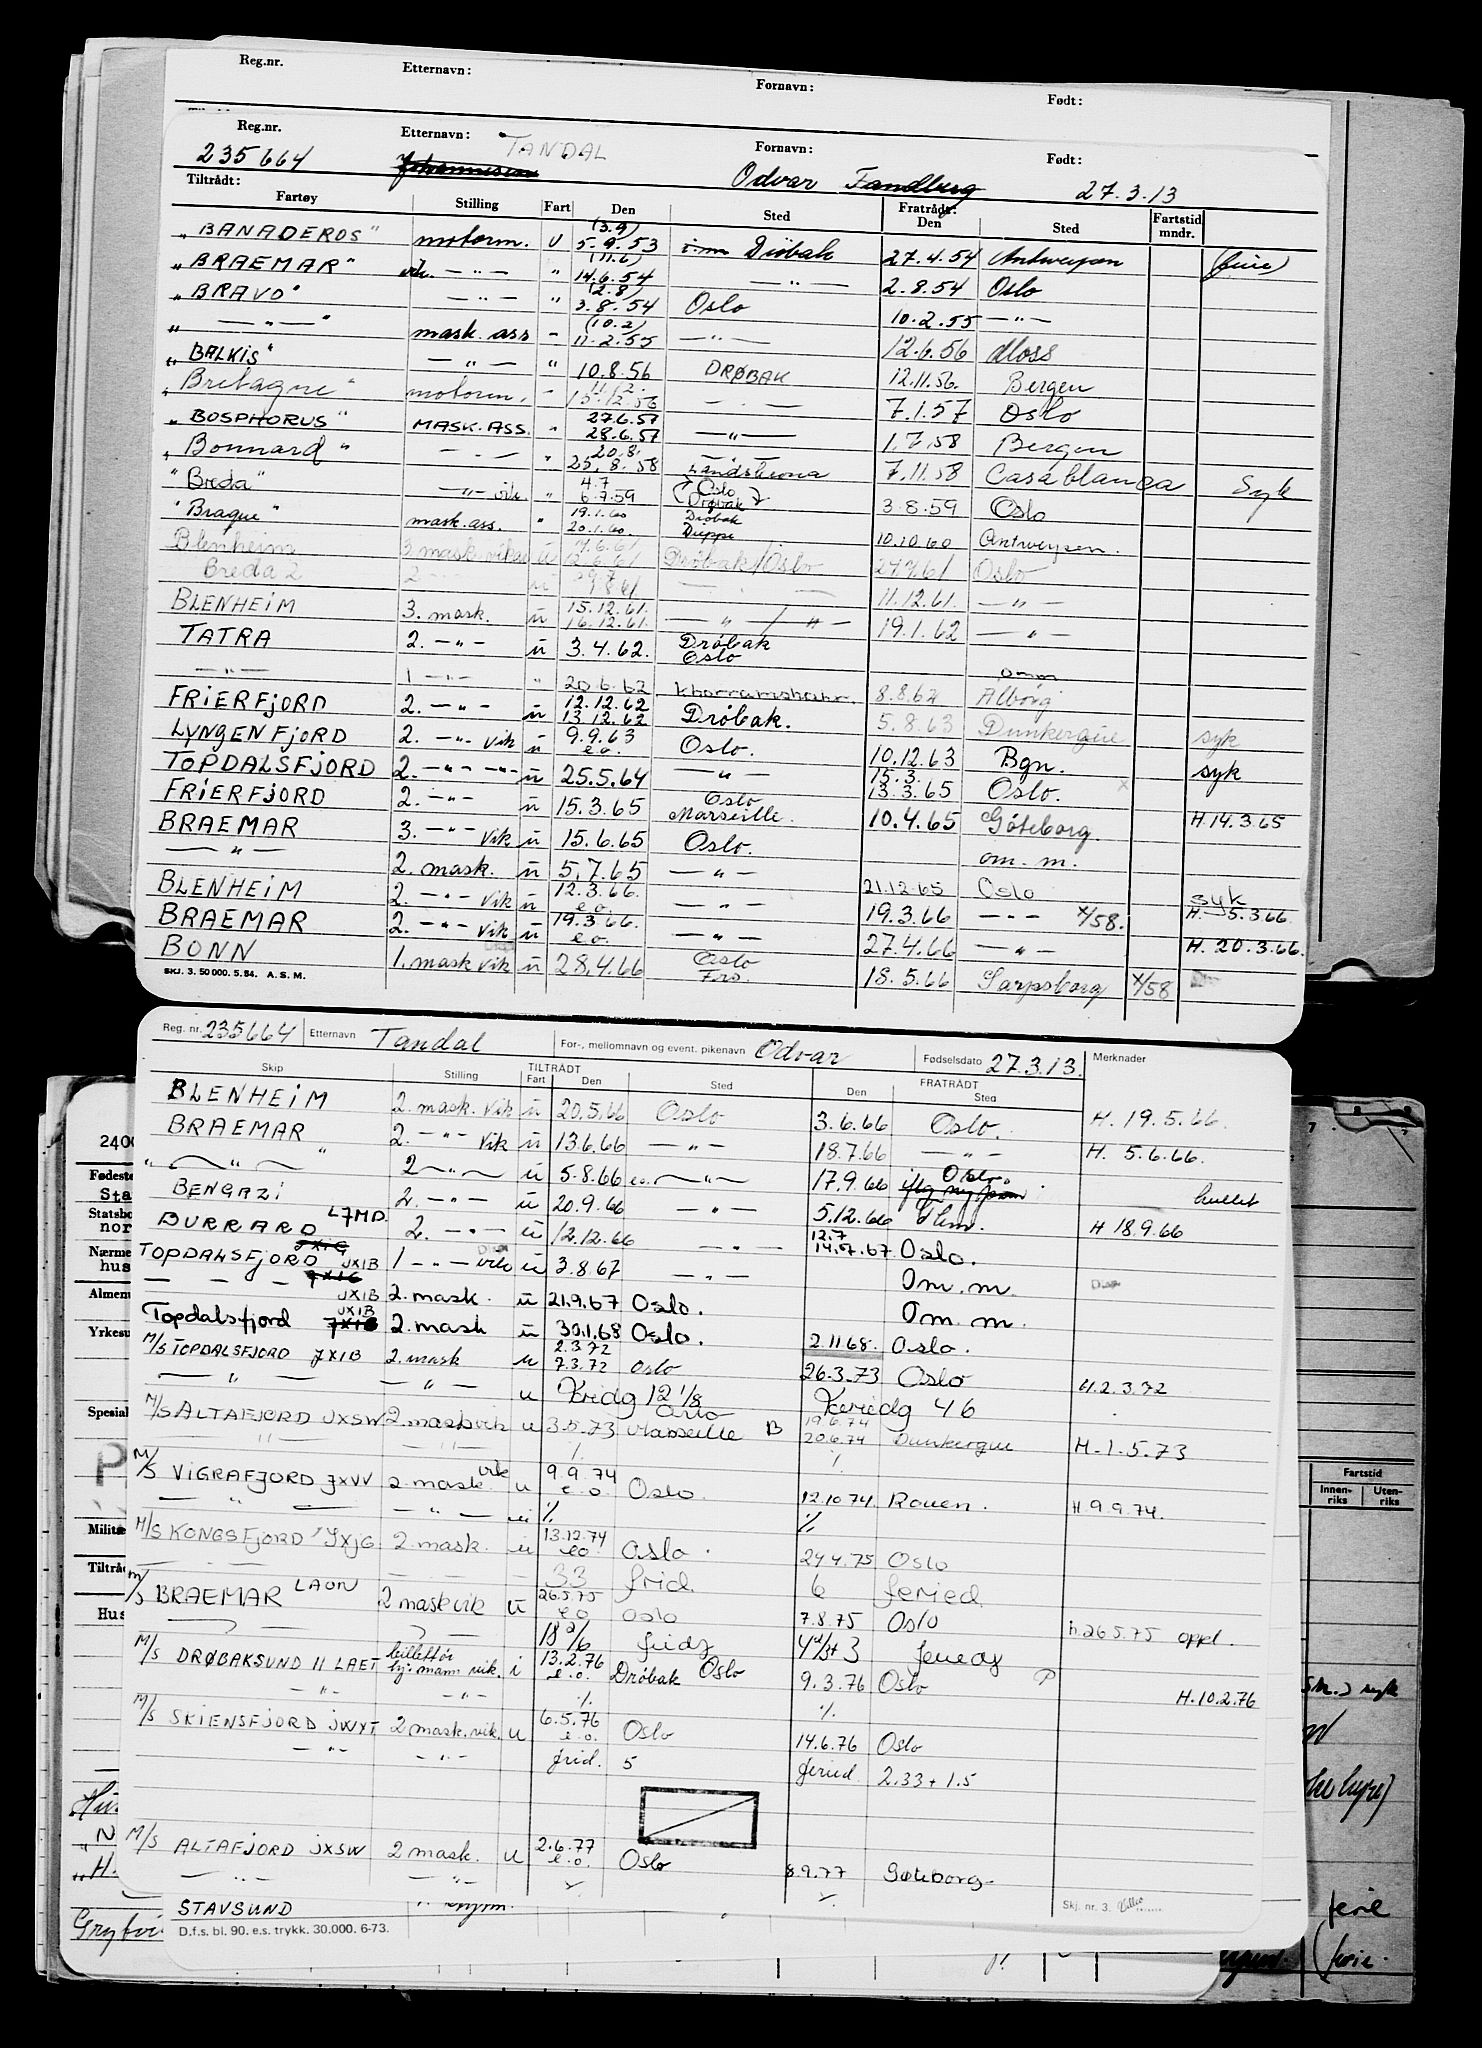 Reg.nr. Etternavn: Fornavn: Født:
Reg.nr. Etternavn: TANDAL Fornavn: Født:
235664 Johannessen Odvar Tandberg 27.3.13
Tiltrådt: Fratrådt:
Fartøy Stilling Fart Den Sted Den Sted Fartstid mndr.
"BANADEROS" motorm. U (3.9) 5.9.53 Drøbak 27.4.54 Antwerpen (ferie)
"BRAEMAR" vik. — " — " (11.6) 14.6.54 — " — 2.8.54 Oslo
"BRAVO" — " — " (2.8) 3.8.54 Oslo 10.2.55 — " —
" — " — " mask. ass - (10.2) 11.2.55 — " — 12.6.56 Moss
"BALKIS" — " — " 10.8.56 DRØBAK 12.11.56. Bergen
"Bretagne" motorm. - 15.12.56 — " — 7.1.57 Oslo
"BOSPHORUS" MASK. ASS. " 27.6.57 28.6.57 — " — 1.7.58 Bergen
"Bonnard" — " — " 20.8. 25.8.58 Landskrona 7.11.58 Casablanca Syk
"Breda" — " — vik. " 4.7 6.7.59 (Oslo Drøbak) 3.8.59 Oslo
"Brague" mask. ass. " 19.1.60 20.1.60 Drøbak Dieppe 10.10.60 Antwerpen.
Blenheim 3 mask. vikar u 12.6.61 Drøbak/Oslo 27.7.61 Oslo
Breda 2 2 — u — " — 11.12.61. — " —
BLENHEIM 3. mask. u 15.12.61. 16.12.61. — " — / — " — 19.1.62 — " —
TATRA 2. — " — u 3.4.62. Drøbak Oslo
— " — 1 — " — " 20.6.62 Khorramshahr. 8.8.62 omm Ålborg
FRIERFJORD 2. — " — u 12.12.62 13.12.62 Drøbak. 5.8.63 Dunkerque syk
LYNGENFJORD 2. — " — vik u 9.9.63 e.o. Oslo. 10.12.63 Bgn. syk
TOPDALSFJORD 2. — " — " — u 25.5.64 — " — 15.3. 13.3.65 Oslo. x
FRIERFJORD 2. — " — u 15.3.65 Oslo Marseille. 10.4.65 Göteborg. H.14.3.65
BRAEMAR 3. — " — vik u 15.6.65 Oslo. om. m.
— " — 2. mask. u 5.7.65 — " — 21.12.65 Oslo syk
BLENHEIM 2. — " — vik u 12.3.66. e.o. — " — 19.3.66 — " — x/58. H. 5.3.66.
BRAEMAR 2. — " — vik u 19.3.66. e.o. — " — 27.4.66 — " — H. 20.3.66.
BONN 1. mask vik u 28.4.66 Oslo Fro. 18.5.66 Sarpsborg x/58
SKJ. 3. 50 000. 5.54. A.S.M.
Reg. nr. 235664 Etternavn Tandal For-, mellomnavn og event. pikenavn Odvar Fødselsdato 27.3.13. Merknader
TILTRÅDT FRATRÅDT
Skip Stilling Fart Den Sted Den Sted
BLENHEIM 2. mask. vik u 20.5.66 Oslo 3.6.66 Oslo. H. 19.5.66.
BRAEMAR 2. — " — vik u 13.6.66 — " — 18.7.66 — " — H. 5.6.66.
" — " — " 2 — " — u 5.8.66 e.o. — " — 17.9.66 Oslo.
BENGAZI 2. — " — u 20.9.66 — " — 5.12.66 H 18.9.66 kullet
BURRARD L7MD 2. — " — u 12.12.66 — " — 12.7 14.7.67 Oslo.
TOPDALSFJORD JXIB 1 — " — vik u 3.8.67 — " — Om. m.
— — — JXIB 2. mask. u 21.9.67 Oslo. Om. m.
Topdalsfjord JXIB 2. mask u 30.1.68 Oslo. 2.11 68. Oslo.
M/S TOPDALSFJORD JXIB 2. mask u 2.3.72 7.3.72 Oslo 26.3.73 Oslo H.2.3.72
— " — — " — u Fridg 12 1/8 Feriedg 46
M/S ALTAFJORD JXSW 2. mask vik u 3.5.73 Oslo Marseille B 19.6.74 20.6.74 Dunkerque H. 1.5.73
— " — — " — % %
M/S VIGRAFJORD JXVV 2 mask. vik u 9.9.74 e.o. Oslo. 12.10.74 Rouen. H.9.9.74.
— " — — " — u % %
M/S KONGSFJORD JXJG 2. mask. u 13.12.74 e.o. Oslo. 24.4.75 Oslo
— — — — — 33 frid. 6 feried
M/S BRAEMAR LAON 2 mask vik u 26.5.75 e.o Oslo 7.8.75 Oslo H.26.5.75 oppl.
18 2/6 fridg 4 2/3 + 3 feriedg
M/S DRØBAKSUND II LAET billettør hj. mann vik. i 13.2.76 e.o. Drøbak Oslo 9.3.76 Oslo P H.10.2.76
— " — — " — % %
M/S SKIENSFJORD JWXT 2 mask. vik. u 6.5.76 e.o. Oslo 14.6.76 Oslo
— " — — " — frid. 5 feried. 2.33 + 1.5
M/S ALTAFJORD JXSW 2 mask. u 2.6.77 e.o. Oslo 8.9.77 Gøteborg
— " — — " — % %
Skj. nr. 3.
STAVSUND
D.f.s. bl. 90. e.s. trykk. 30.000. 6-73.
2400
Fødeste
Sta
Statsbo
nor
Nærme
hus
Almen
Yrkesu
Spesial
Militæ
Tiltråd
Hus
Fartstid
Innenriks Utenriks
syk
ferie
(ferie.